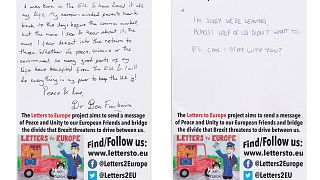 I was born in the EU & have lived it all
my life. My narrow-minded parents hark
back to the days before the common market,
but the more I see & hear about it, the
more I fear descent into the return to
those. Whether its peace, science or the
environment so many good parts of my
life have benefited from the EU & I will
do everything in my power to keep the U.K. in!
Peace & Love,
Dr Ben
The Letters to Europe project aims to send a message
of Peace and Unity to our European Friends and bridge
the divide that Brexit threatens to drive between us.
LETTERS to EUROPE
Find/Follow us:
www.lettersto.eu
@Letters2Europe
@LettersTOEU
I'M SORRY WE'RE LEAVING,
ALMOST HALF OF US DIDN'T WANT TO
P.S. CAN I STAY WITH YOU?
The Letters to Europe project aims to send a message
of Peace and Unity to our European Friends and bridge
the divide that Brexit threatens to drive between us.
LETTERS to EUROPE
Find/Follow us:
www.lettersto.eu
@Letters2Europe
@LettersTOEU